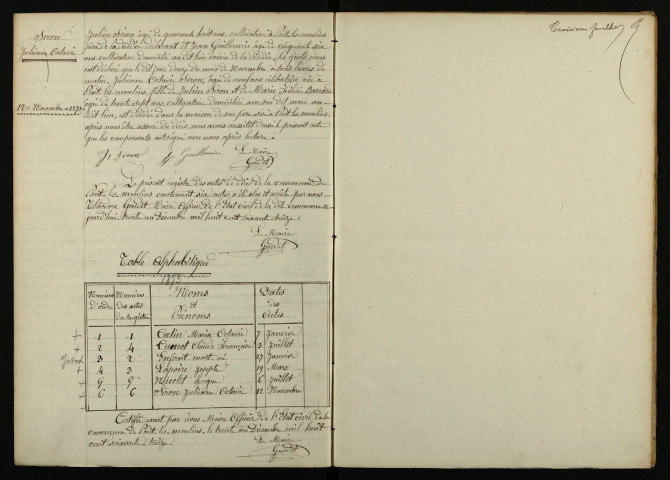 Siron
Julienne Octavie
12 Novembre 1873
Julien Siron âgé de quarante huit ans, cultivateur à Pont les moulins
père de la décédée déclarant et Jean Guillemin âgé de cinquante six
ans, cultivateur domicilié au dit lieu voisin de la décédée, les quels nous
ont déclaré que le dit jour douze du mois de Novembre à trois heures du
matin, Julienne Octavie Siron, âgée de neuf ans célibataire née à
Pont les moulins, fille de Julien Siron et de Marie
âgée de trente sept ans, cultivatrice domiciliée avec son dit mari au
dit lieu, est décédée dans la maison de son père sise à Pont les moulins,
après nous être assuré du décès nous avons rédigé le présent acte
que les comparants ont signé avec nous après lecture.
Guillemin
Le Maire
Guédot
Le présent registre des actes de décès de la commune de
Pont les moulins contenant six actes, a été clos et arrêté par nous
Guédot Maire Officier de l'État civil de la dite commune ce
jourd'hui trente un Décembre mil huit cent soixante treize
Le Maire
Guédot
Table Alphabétique
1873
Numéros d'ordre Numéros des actes du registre Noms et Prénoms Dates des Actes
1 1 Catin Maria Octavie 7 Janvier
2 4 Cuenot Claude François 3 Juillet
3 2 Enfant mort-né 27 Janvier
4 3 Lapoire Joseph 19 Mars
5 5 Nicolet 6 Juillet
6 6 Siron Julienne Octavie 12 Novembre
Certifié exact par nous Maire Officier de l'État civil de la
commune de Pont les moulins, le trente un Décembre mil huit
cent soixante treize
Le Maire
Guédot
Troisième feuillet